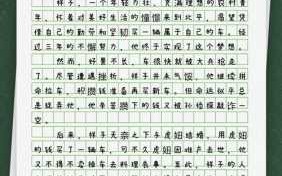 祥子,一个年轻力壮、充满理想的农村青年,怀着对美好生活的憧憬来到北平,希望凭借自己的勤劳和坚韧买一辆属于自己的车。经过三年的不懈努力,他终于实现了这个梦想。
然而,好景不长,车很快就被大兵抢走了。尽管遭遇挫折,祥子并未气馁,他继续拼命拉车,积攒钱准备再买新车。但命运似乎总是捉弄他,他辛苦攒下的钱又被孙侦探敲诈一空。
后来,祥子无奈之下与虎妞结婚,用虎妞的钱买了一辆车,可不久虎妞因难产去世,他又不得不卖掉车去料理丧事。至此,祥子的人